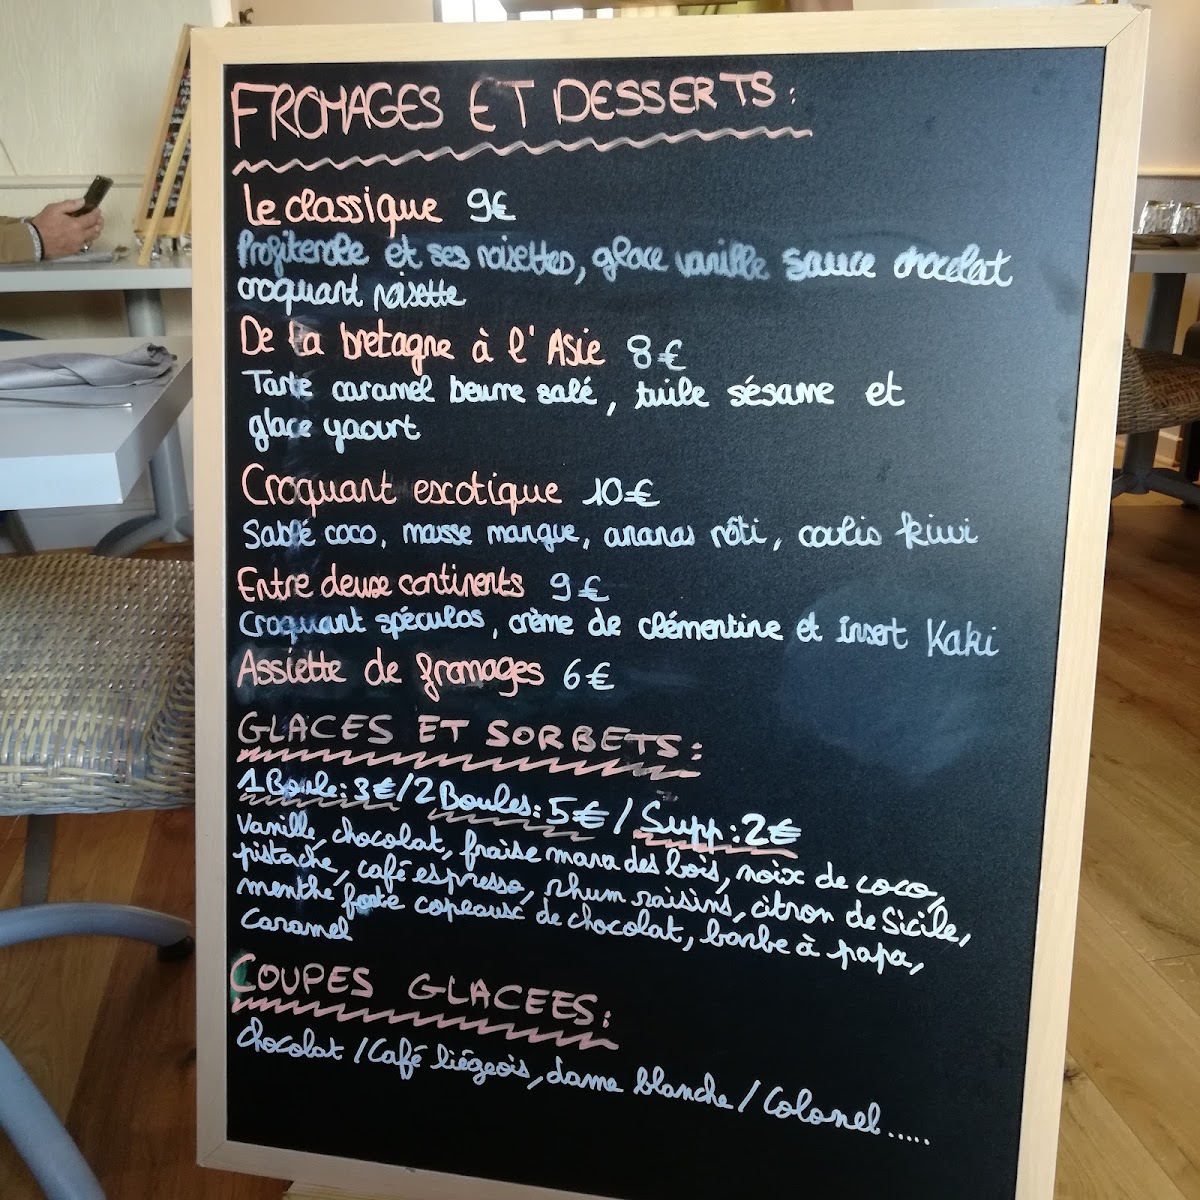 FROMAGES ET DESSERTS :
Le classique 9€
Profiterole et ses noisettes, glace vanille sauce chocolat
croquant noisette
De la bretagne à l'Asie 8€
Tarte caramel beurre salé, tuile sésame et
glace yaourt
Croquant escotique 10€
Sablé coco, masse mangue, ananas rôti, coulis kiwi
Entre deuse continents 9€
Croquant spéculos, crème de clémentine et insert Kaki
Assiette de fromages 6€
GLACES ET SORBETS :
1 Boule : 3€ / 2 Boules : 5€ / Supp : 2€
Vanille, chocolat, fraise mara des bois, noix de coco,
pistache, café espresso, rhum raisins, citron de Sicile,
menthe forte copeause de chocolat, barbe à papa,
Caramel
COUPES GLACEES :
Chocolat / Café liégeois, dame blanche / Colonel.....